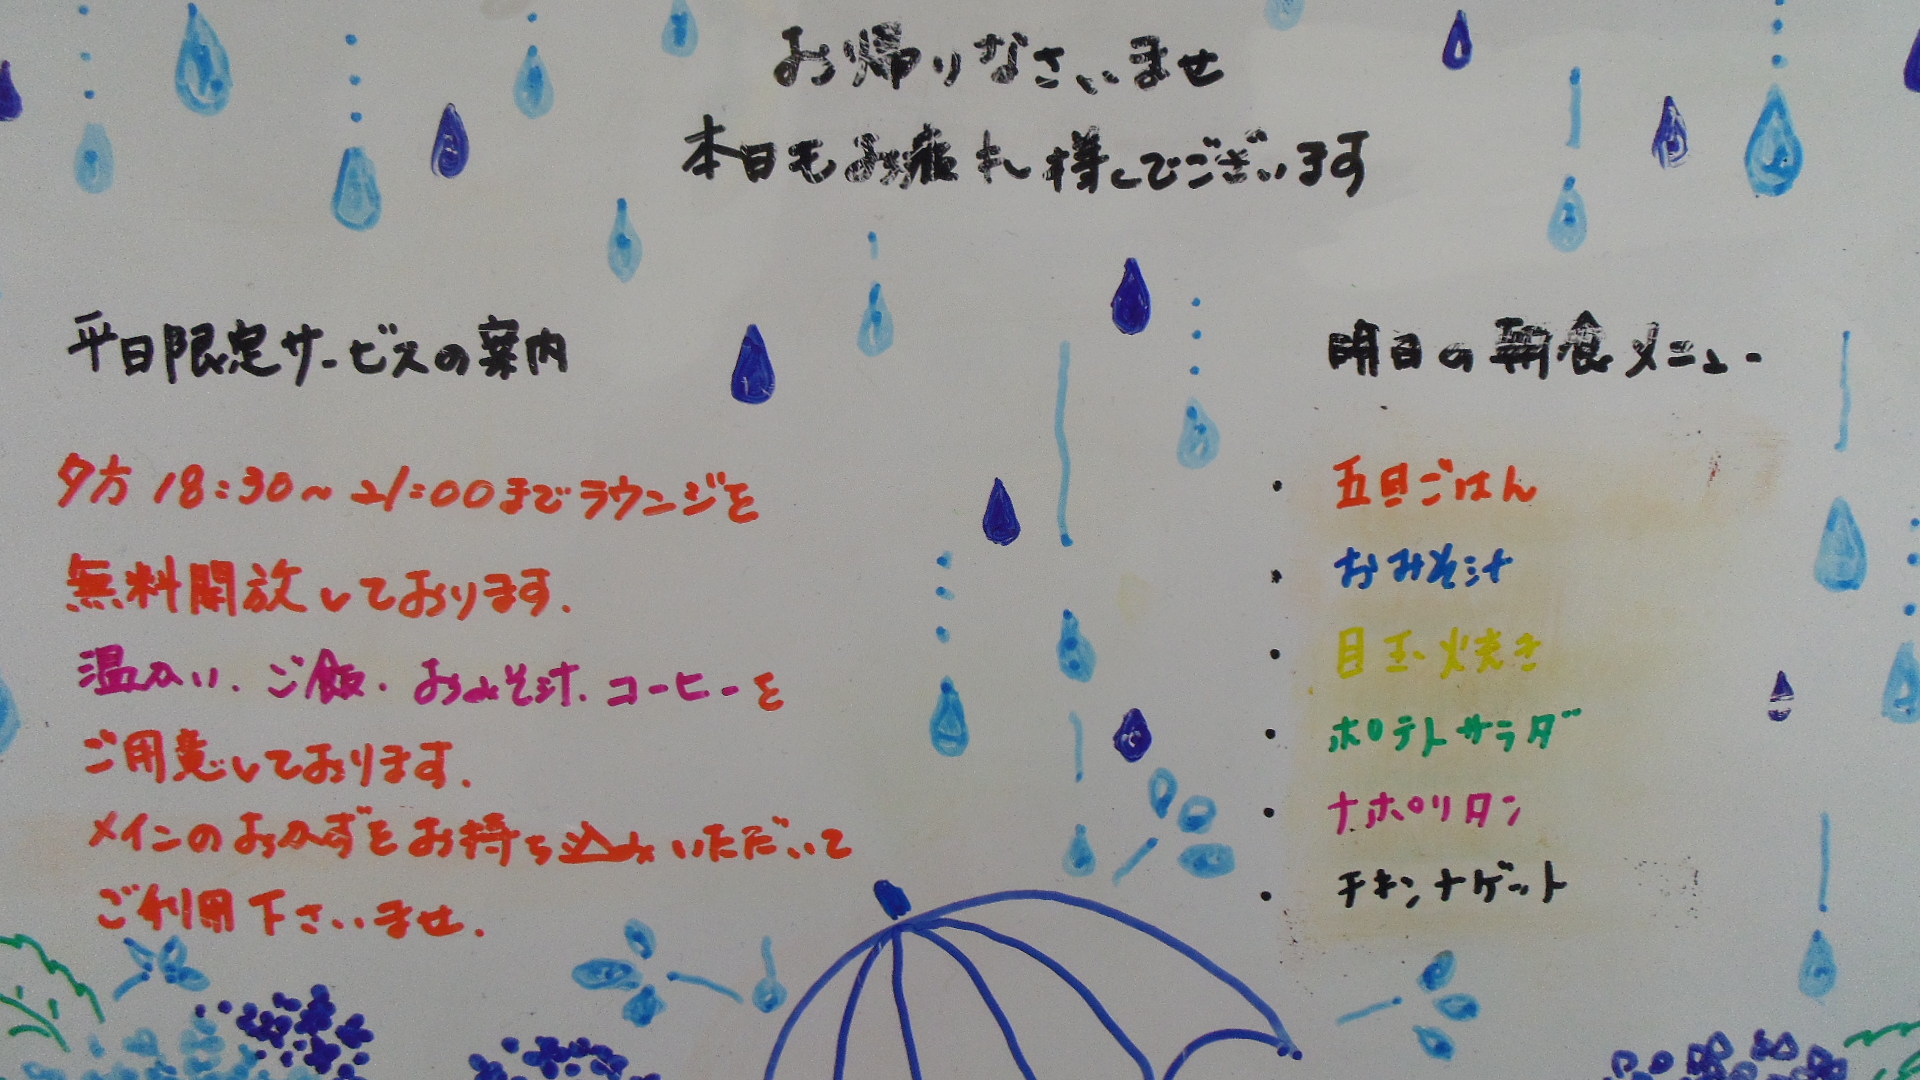 お帰りなさいませ
本日もお疲れ様でございます
平日限定サービスの案内
夕方 18:30～21:00までラウンジを
無料開放しております.
温かい.ご飯.おみそ汁.コーヒーを
ご用意しております.
メインのおかずをお持ち込みいただいて
ご利用下さいませ.
明日の朝食メニュー
・五目ごはん
・おみそ汁
・目玉焼き
・ポテトサラダ
・ナポリタン
・チキンナゲット